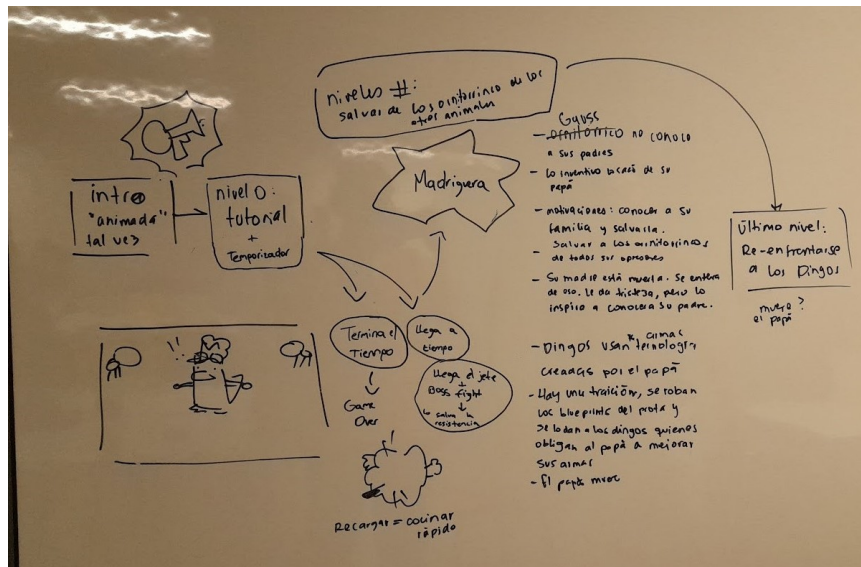 intro
"animada"
tal vez
nivel 0:
tutorial
+
Temporizador
niveles #:
salvar de los ornitorrinco de los
otros animales
Madriguera
Termina el
Tiempo
Game
Over
llega a
tiempo
llega el jefe
+
Boss fight
Lo salva la
resistencia
Recargar = cocinar
rápido
Gauss
- ornitorrico no conoce
a sus padres
- Lo inventivo lo sacó de su
papá
- motivaciones: conocer a su
familia y salvarla.
- Salvar a los ornitorrincos
de todos sus opresores
- Su madre está muerta. Se entera
de eso. Le da tristeza, pero lo
inspira a conocer a su padre.
- Dingos usan tecnología
y armas
creadas por el papá
- Hay una traición, se roban
los blueprints del prota y
se lo dan a los dingos quienes
obligan al papá a mejorar
sus armas
- El papá muere
Último nivel:
Re-enfrentarse
a los Dingos
muere ?
el papá